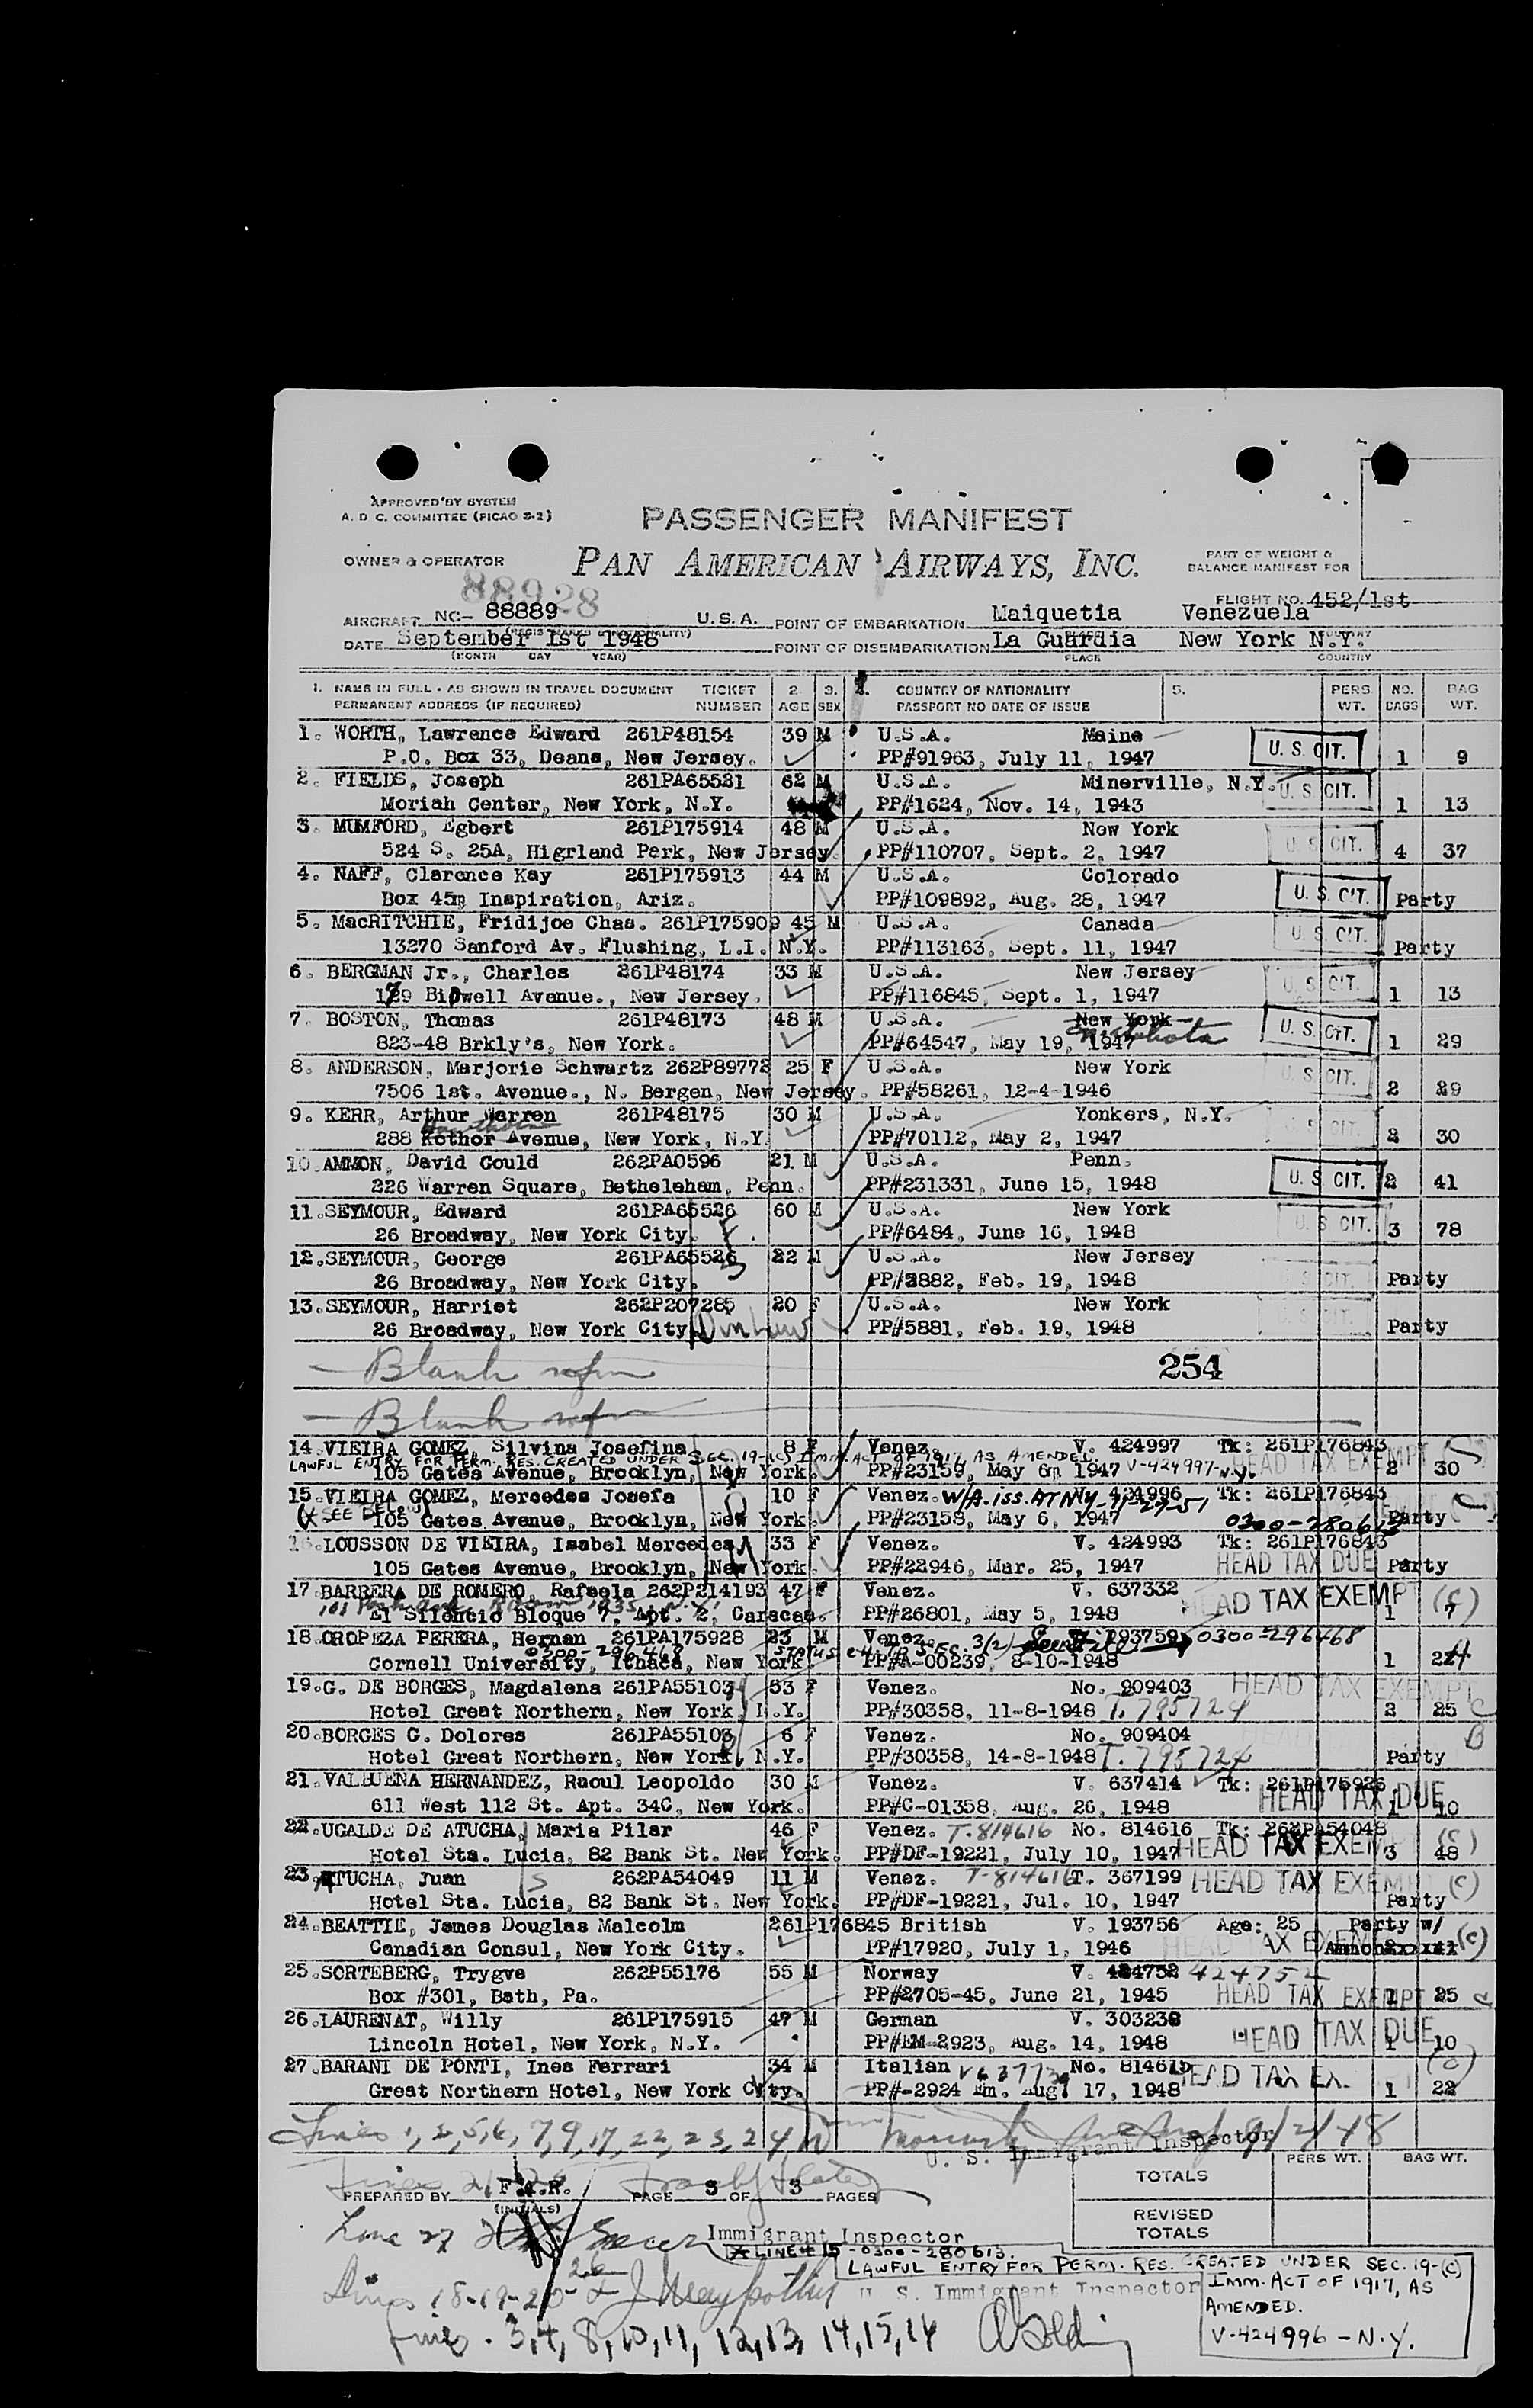 APPROVED BY SYSTEM
A. D. C. COMMITTEE (PICAO S-2)
PASSENGER MANIFEST
OWNER & OPERATOR
PAN AMERICAN AIRWAYS, INC.
PART OF WEIGHT &
BALANCE MANIFEST FOR
88928
FLIGHT NO. 452/1st
AIRCRAFT NC- 88889 U.S.A. POINT OF EMBARKATION Maiquetia Venezuela
DATE September 1st 1948 POINT OF DISEMBARKATION La Guardia New York N.Y.
(MONTH DAY YEAR) PLACE COUNTRY
1. NAME IN FULL - AS SHOWN IN TRAVEL DOCUMENT TICKET 2. 3. 4. COUNTRY OF NATIONALITY 5. PERS NO. BAG
PERMANENT ADDRESS (IF REQUIRED) NUMBER AGE SEX PASSPORT NO DATE OF ISSUE WT. BAGS WT.
1. WORTH, Lawrence Edward 261P48154 39 M U.S.A. Maine U. S. CIT.
P.O. Box 33, Deans, New Jersey. PP#91963, July 11, 1947 1 9
2. FIELDS, Joseph 261PA65531 62 M U.S.A. Minerville, N.Y. U. S. CIT.
Moriah Center, New York, N.Y. PP#1624, Nov. 14, 1943 1 13
3. MUMFORD, Egbert 261P175914 48 M U.S.A. New York U. S. CIT.
524 S. 25A, Higrland Perk, New Jersey. PP#110707, Sept. 2, 1947 4 37
4. NAFF, Clarence Kay 261P175913 44 M U.S.A. Colorado U. S. CIT.
Box 45m Inspiration, Ariz. PP#109892, Aug. 28, 1947 Party
5. MacRITCHIE, Fridijoe Chas. 261P175909 45 M U.S.A. Canada U. S. CIT.
13270 Sanford Av. Flushing, L.I. N.Y. PP#113163, Sept. 11, 1947 Party
6. BERGMAN Jr., Charles 261P48174 33 M U.S.A. New Jersey U. S. CIT.
179 Bidwell Avenue., New Jersey. PP#116845, Sept. 1, 1947 1 13
7. BOSTON, Thomas 261P48173 48 M U.S.A. New York U. S. CIT.
823-48 Brkly's, New York. PP#64547, May 19, 1947 1 29
8. ANDERSON, Marjorie Schwartz 262P89778 25 F U.S.A. New York U. S. CIT.
7506 1st. Avenue., N. Bergen, New Jersey. PP#58261, 12-4-1946 2 29
9. KERR, Arthur Warren 261P48175 30 M U.S.A. Yonkers, N.Y. U. S. CIT.
288 Hawthorne Avenue, New York, N.Y. PP#70112, May 2, 1947 2 30
10. AMMON, David Gould 262PA0596 21 M U.S.A. Penn.
226 Warren Square, Betheleham, Penn. PP#231331, June 15, 1948 U. S. CIT. 2 41
11. SEYMOUR, Edward 261PA65526 60 M U.S.A. New York U. S. CIT.
26 Broadway, New York City. PP#6484, June 16, 1948 3 78
12. SEYMOUR, George 261PA65526 22 M U.S.A. New Jersey U. S. CIT.
26 Broadway, New York City. PP#3882, Feb. 19, 1948 Party
13. SEYMOUR, Harriet 262P207285 20 F U.S.A. New York U. S. CIT.
26 Broadway, New York City PP#5881, Feb. 19, 1948 Party
Blank 254
Blank
14. VIEIRA GOMEZ, Silvina Josefina 8 F Venez. V. 424997 Tk: 261P176843
LAWFUL ENTRY FOR PERM. RES. CREATED UNDER SEC. 19-(C) IMM. ACT OF 1917, AS AMENDED. V-424997-N.Y. HEAD TAX EXEMPT
105 Gates Avenue, Brooklyn, New York. PP#23159, May 6m 1947 2 30
15. VIEIRA GOMEZ, Mercedes Josefa 10 F Venez. W/A. ISS. AT NY 424996 11-29-51 Tk: 261P176843
(X SEE BELOW) 105 Gates Avenue, Brooklyn, New York. PP#23158, May 6, 1947 0300-280613 Party
16. LOUSSON DE VIEIRA, Isabel Mercedes 33 F Venez. V. 424993 Tk: 261P176843
105 Gates Avenue, Brooklyn, New York. PP#22946, Mar. 25, 1947 HEAD TAX DUE Party
17. BARRERA DE ROMERO, Rafaela 262P214193 47 F Venez. V. 637332 HEAD TAX EXEMPT
El Silencio Bloque 7, Apt. 2, Caracas. PP#26801, May 5, 1948 1
18. OROPEZA PERERA, Hernan 261PA175928 23 M Venez. 793759 0300-296468
0300-296468
Cornell University, Ithaca, New York. PP#A-00239, 8-10-1948 1 24
19. G. DE BORGES, Magdalena 261PA55103 53 F Venez. No. 909403 HEAD TAX EXEMPT
Hotel Great Northern, New York, N.Y. PP#30358, 11-8-1948 T. 795724 2 25
20. BORGES G. Dolores 261PA55103 6 F Venez. No. 909404
Hotel Great Northern, New York, N.Y. PP#30358, 14-8-1948 T. 795724 Party
21. VALBUENA HERNANDEZ, Raoul Leopoldo 30 M Venez. V. 637414 Tk: 261P175926
611 West 112 St. Apt. 34C, New York. PP#C-01358, Aug. 26, 1948 HEAD TAX DUE 1 10
22. UGALDE DE ATUCHA, Maria Pilar 46 F Venez. T.814616 No. 814616 Tk: 262PA54048
Hotel Sta. Lucia, 82 Bank St. New York. PP#DF-19221, July 10, 1947 HEAD TAX EXEMPT 3 48
23. ATUCHA, Juan 262PA54049 11 M Venez. T-814616 T. 367199 HEAD TAX EXEMPT (C)
Hotel Sta. Lucia, 82 Bank St. New York. PP#DF-19221, Jul. 10, 1947 Party
24. BEATTIE, James Douglas Malcolm 261P176845 British V. 193756 Age: 25 Party w/
Canadian Consul, New York City. PP#17920, July 1, 1946 HEAD TAX EXEMPT (C)
25. SORTEBERG, Trygve 262P55176 55 M Norway V. 424752 424752
Box #301, Bath, Pa. PP#2705-45, June 21, 1945 HEAD TAX EXEMPT 1 25
26. LAURENAT, Willy 261P175915 47 M German V. 303238
Lincoln Hotel, New York, N.Y. PP#EM-2923, Aug. 14, 1948 HEAD TAX DUE 1 10
27. BARANI DE PONTI, Ines Ferrari 34 M Italian No. 814615 (C)
Great Northern Hotel, New York City. PP#-2924 Em. Aug. 17, 1948 HEAD TAX EX. 1 22
Lines 1, 2, 5, 6, 7, 9, 17, 22, 23, 24 9/2/48
U. S. Immigrant Inspector
PERS WT. BAG WT.
TOTALS
PREPARED BY F.A.R. PAGE 3 OF 3 PAGES
(INITIALS)
REVISED
TOTALS
Line 27 Immigrant Inspector
X LINE# 15 - 0300-280613.
LAWFUL ENTRY FOR PERM. RES. CREATED UNDER SEC. 19-(C)
IMM. ACT OF 1917, AS
AMENDED.
V-424996 - N.Y.
Lines 18-19-20 U. S. Immigrant Inspector
Lines 3,4, 8, 10, 11, 12, 13, 14, 15, 16